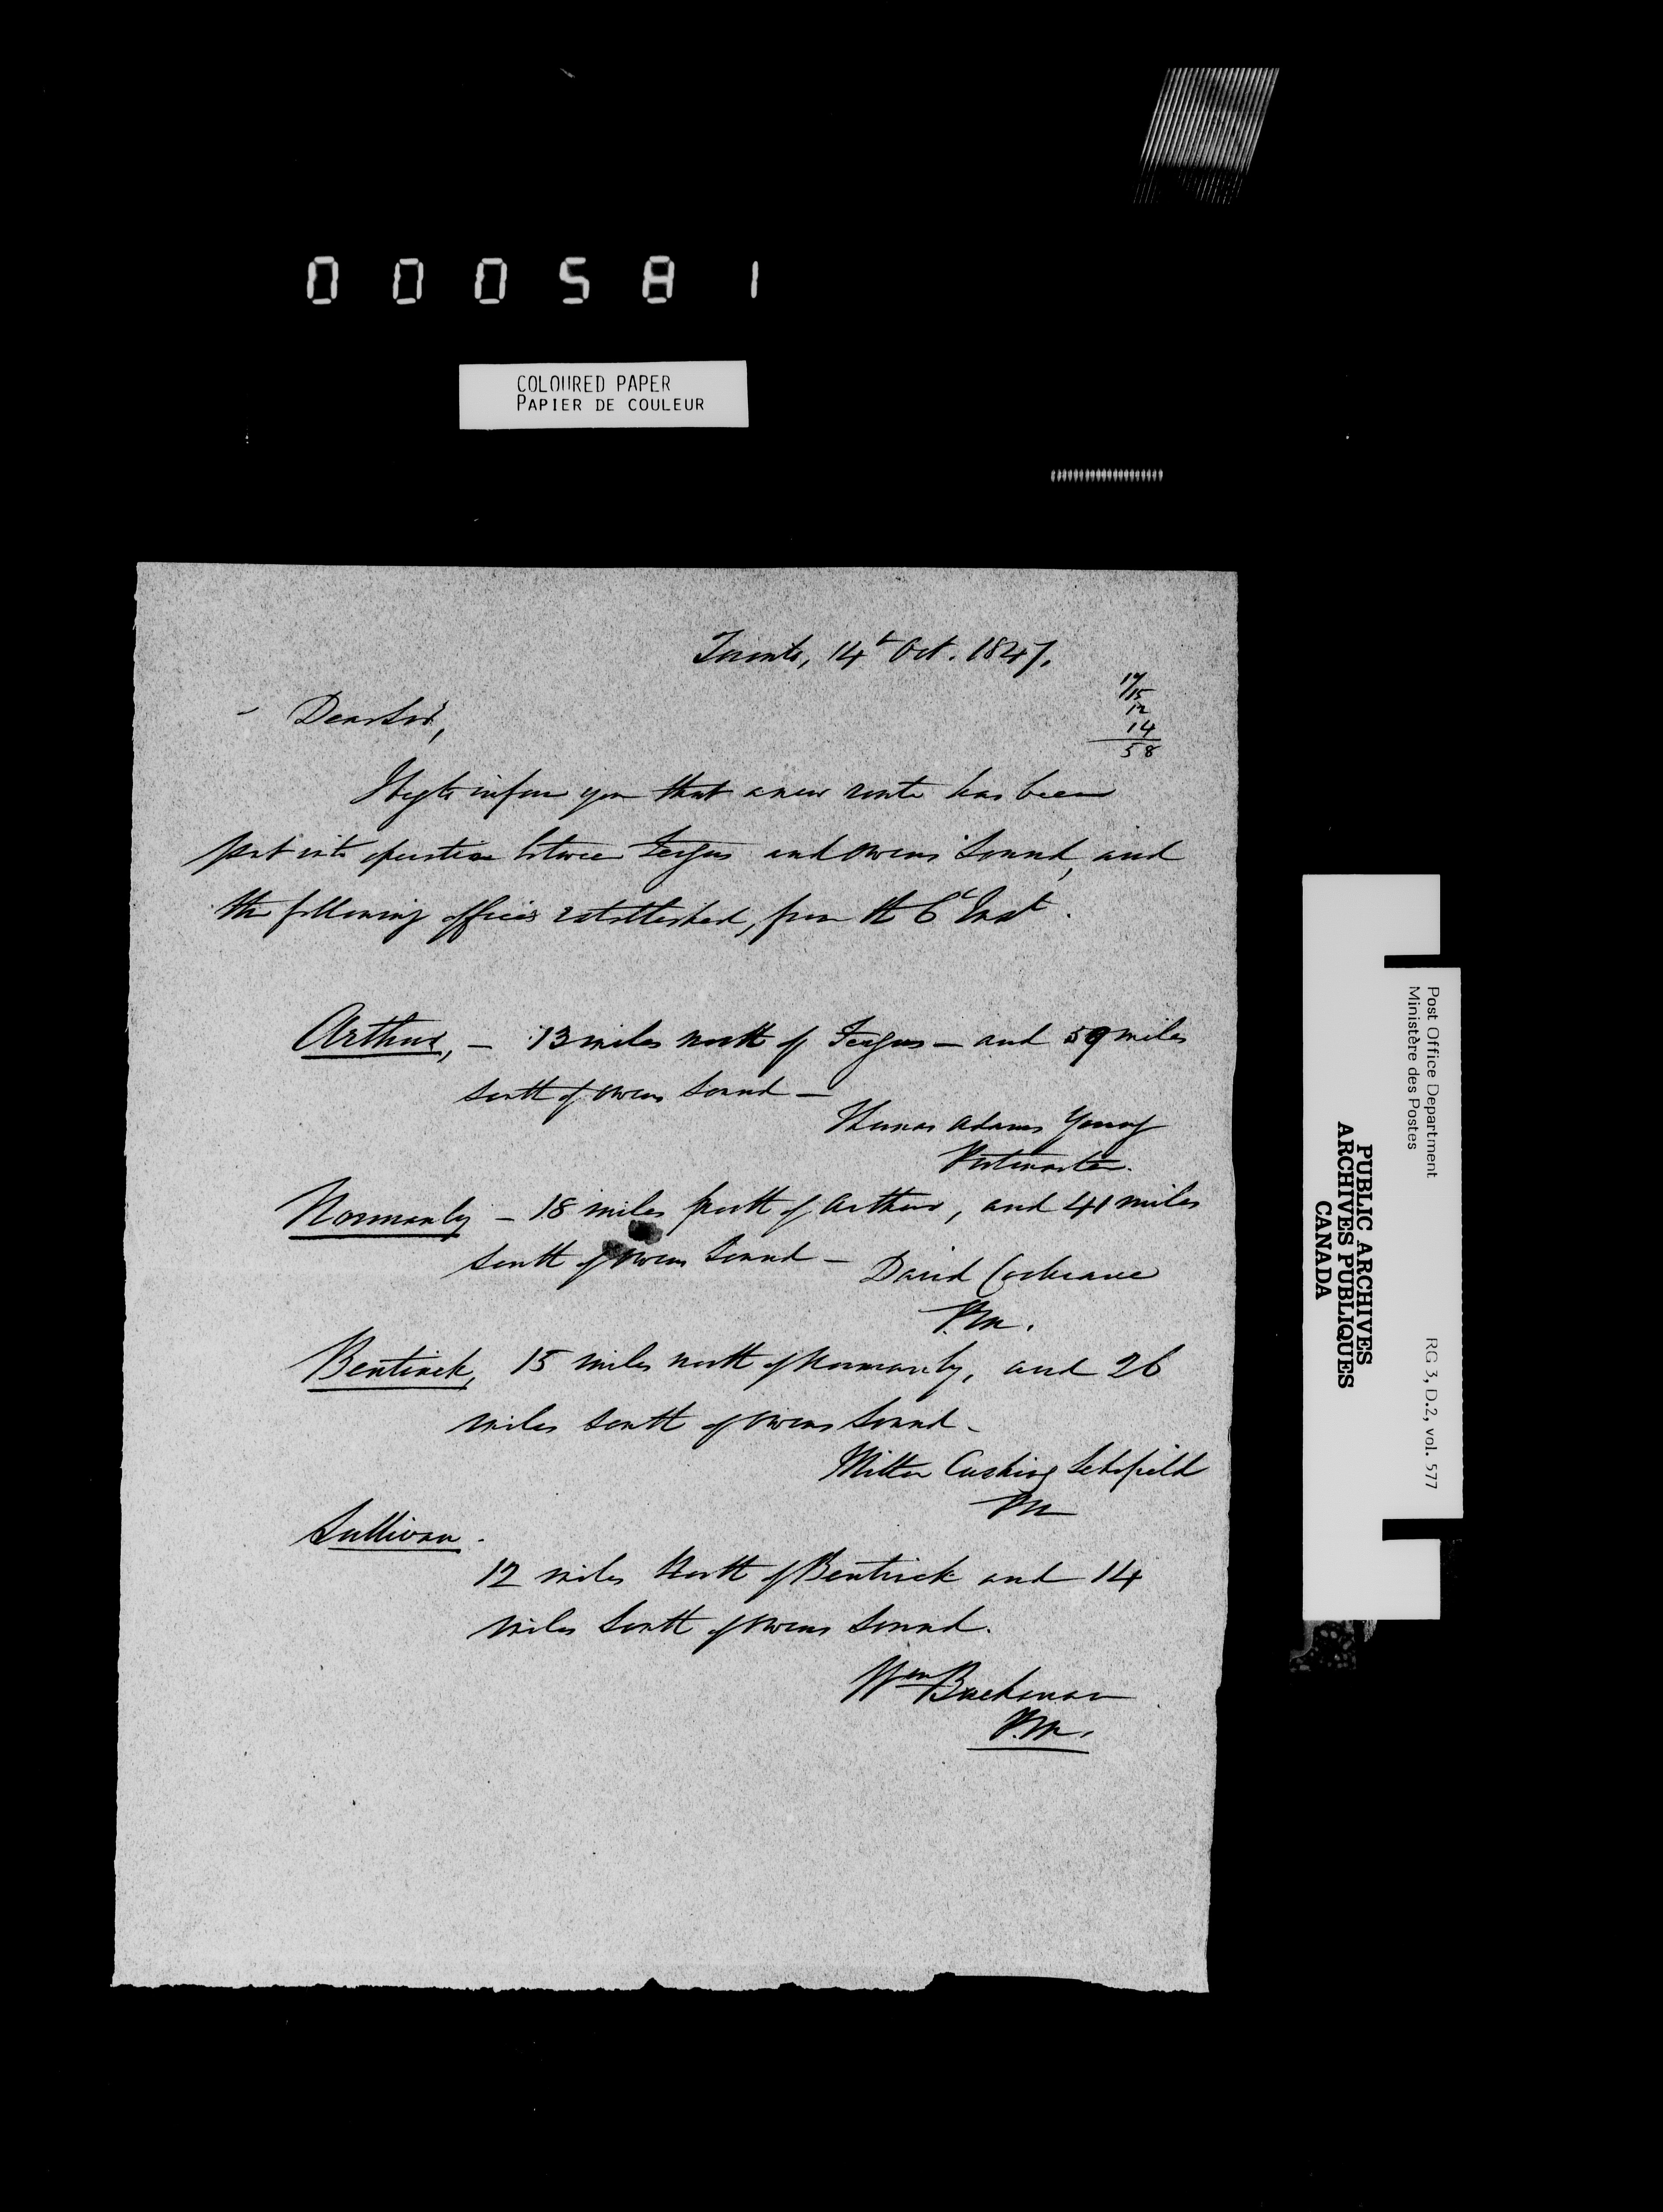 000581
COLOURED PAPER
PAPIER DE COULEUR
Toronto, 14th Oct. 1847.
17/15
12
14
58
Dear Sir,
I beg to inform you that a new route has been
put into operation between Fergus and Owens Sound, and
the following offices established, from the 6th Inst.
Arthur, – 13 miles north of Fergus – and 59 miles
south of Owens Sound –
Thomas Adams Young
Postmaster.
Normanby – 18 miles north of Arthur, and 41 miles
south of Owens Sound –
David Cochrane
P.M.
Bentinck, 15 miles north of Normanby, and 26
miles south of Owens Sound –
Milton Cushing Schofield
PM
Sullivan.
12 miles North of Bentinck and 14
miles South of Owens Sound.
Wm Buchanan
P.M.
Post Office Department
Ministère des Postes
RG 3, D.2, vol. 577
PUBLIC ARCHIVES
ARCHIVES PUBLIQUES
CANADA